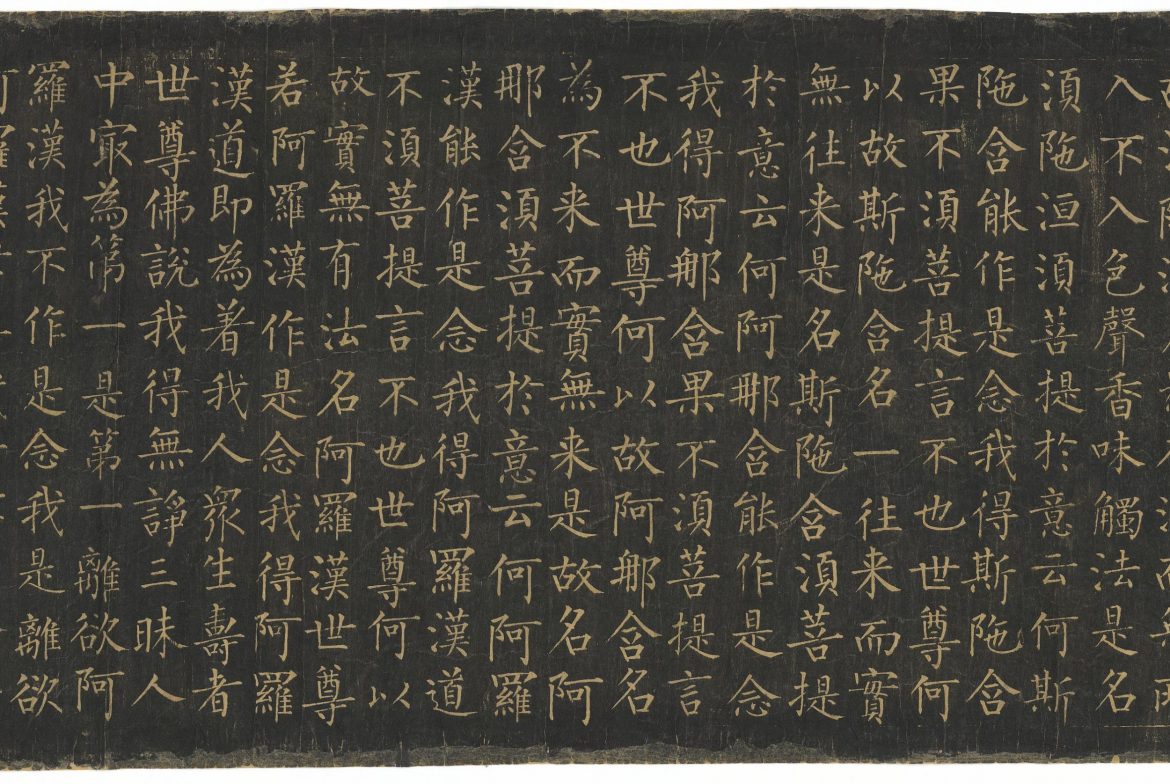 入不入色聲香味觸法是名
須陁洹須菩提於意云何斯
陁含能作是念我得斯陁含
果不須菩提言不也世尊何
以故斯陁含名一往来而實
無往来是名斯陁含須菩提
於意云何阿那含能作是念
我得阿那含果不須菩提言
不也世尊何以故阿那含名
為不来而實無来是故名阿
那含須菩提於意云何阿羅
漢能作是念我得阿羅漢道
不須菩提言不也世尊何以
故實無有法名阿羅漢世尊
若阿羅漢作是念我得阿羅
漢道即為著我人眾生壽者
世尊佛說我得無諍三昧人
中冣為第一是第一離欲阿
羅漢我不作是念我是離欲